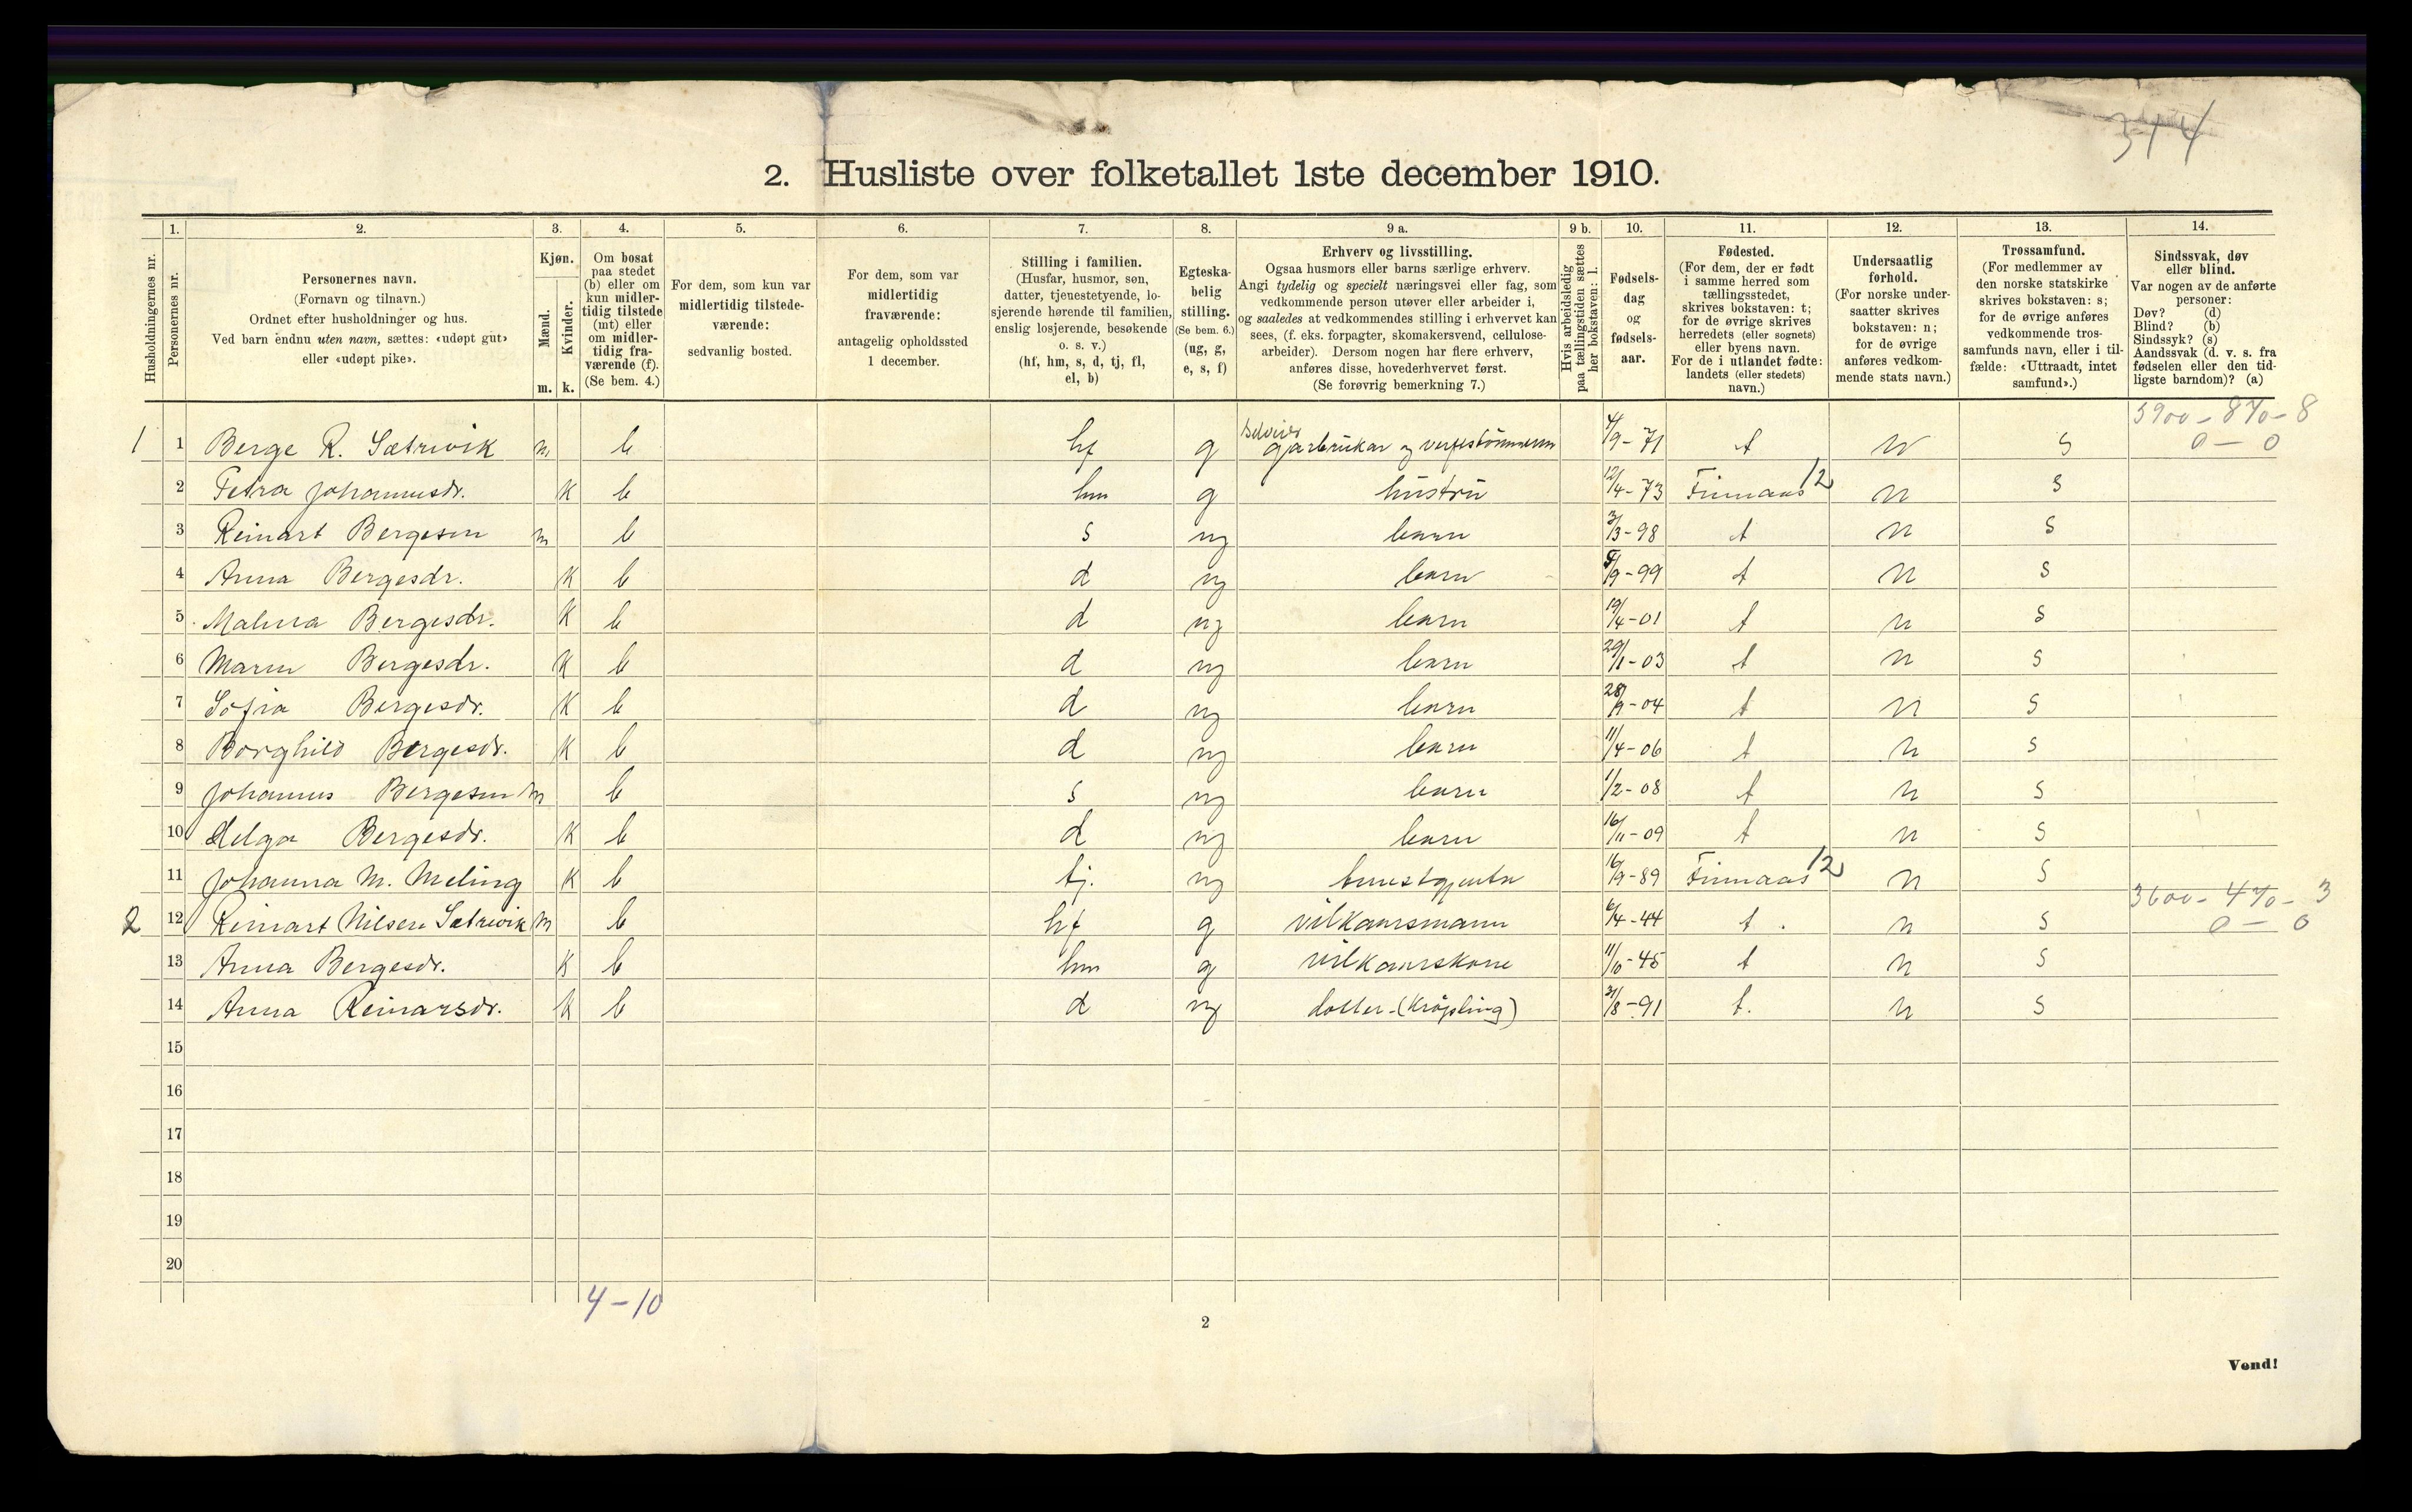 344
2. Husliste over folketallet 1ste december 1910.
1. 2. 3. 4. 5. 6. 7. 8. 9 a. 9 b. 10. 11. 12. 13. 14.
Husholdningernes nr.
Personernes nr.
Personernes navn.
(Fornavn og tilnavn.)
Ordnet efter husholdninger og hus.
Ved barn endnu uten navn, sættes: «udøpt gut»
eller «udøpt pike».
Kjøn.
Mænd.
Kvinder.
m. k.
Om bosat
paa stedet
(b) eller om
kun midler-
tidig tilstede
(mt) eller
om midler-
tidig fra-
værende (f).
(Se bem. 4.)
For dem, som kun var
midlertidig tilstede-
værende:
sedvanlig bosted.
For dem, som var
midlertidig
fraværende:
antagelig opholdssted
1 december.
Stilling i familien.
(Husfar, husmor, søn,
datter, tjenestetyende, lo-
sjerende hørende til familien,
enslig losjerende, besøkende
o. s. v.)
(hf, hm, s, d, tj, fl,
el, b)
Egteska-
belig
stilling.
(Se bem. 6.)
(ug, g,
e, s, f)
Erhverv og livsstilling.
Ogsaa husmors eller barns særlige erhverv.
Angi tydelig og specielt næringsvei eller fag, som
vedkommende person utøver eller arbeider i,
og saaledes at vedkommendes stilling i erhvervet kan
sees, (f. eks. forpagter, skomakersvend, cellulose-
arbeider). Dersom nogen har flere erhverv,
anføres disse, hovederhvervet først.
(Se forøvrig bemerkning 7.)
Hvis arbeidsledig
paa tællingstiden sættes
her bokstaven: l.
Fødsels-
dag
og
fødsels-
aar.
Fødested.
(For dem, der er født
i samme herred som
tællingsstedet,
skrives bokstaven: t;
for de øvrige skrives
herredets (eller sognets)
eller byens navn.
For de i utlandet fødte:
landets (eller stedets)
navn.)
Undersaatlig
forhold.
(For norske under-
saatter skrives
bokstaven: n;
for de øvrige
anføres vedkom-
mende stats navn.)
Trossamfund.
(For medlemmer av
den norske statskirke
skrives bokstaven: s;
for de øvrige anføres
vedkommende tros-
samfunds navn, eller i til-
fælde: «Uttraadt, intet
samfund».)
Sindssvak, døv
eller blind.
Var nogen av de anførte
personer:
Døv? (d)
Blind? (b)
Sindssyk? (s)
Aandssvak (d. v. s. fra
fødselen eller den tid-
ligste barndom)? (a)
5900 - 870 - 8
0 - 0
1 1 Berge R. Sætrevik m b hf g selveier garbrukar og 4/9-71 t n s
2 Petra Johannesdr. k b hm g hustru 12/4-73 Finnaas 12 n s
3 Reinart Bergesen m b s ug barn 3/3-98 t n s
4 Anna Bergesdr. k b d ug barn 5/9-99 t n s
5 Malena Bergesdr. k b d ug barn 19/4-01 t n s
6 Maren Bergesdr. k b d ug barn 29/1-03 t n s
7 Sofia Bergesdr. k b d ug barn 28/9-04 t n s
8 Borghild Bergesdr. k b d ug barn 11/4-06 t n s
9 Johannes Bergesen m b s ug barn 1/2-08 t n s
10 Helga Bergesdr. k b d ug barn 16/11-09 t n s
11 Johanna M. Meling k b tj. ug tenestgjenta 16/9-89 Finnaas 12 n s
3600 - 470 - 3
0 - 0
2 12 Reinart Nilsen Sætrevik m b hf g vilkaarsmann 6/4-44 t. n s
13 Anna Bergesdr. k b hm g vilkaarskone 11/10-45 t n s
14 Anna Reinarsdr. k b d ug dotter-(krøpling) 31/8-91 t. n s
15
16
17
18
19
20
4-10
2
Vend!